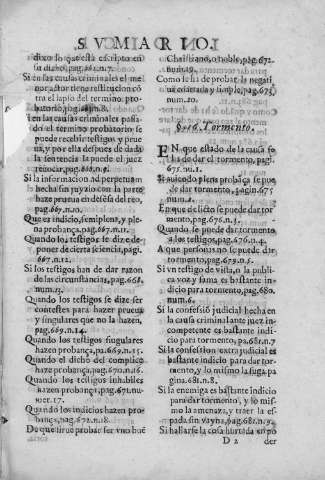 dixo lo que està escripto en
su dicho, pag. 661. n. 7.
Si en las causas criminales el me
nor actor tiene restitucion cō
tra el lapso del termino pro-
batorio, pag. n. 8.
Si en las causas criminales passa
do el termino probatorio se
puede recebir testigos y prue
ua, y por ella despues de dada
la sentencia la puede el juez
reuocar, pag.
Si la informacion ad perpetuam
hecha sin juyzio con la parte
haze prueua en defesa del reo,
pag. 667. n. 10.
Que es indicio, semiplena, y ple-
na probança, pag. 667. n. 11.
Quando los testigos se dize de-
poner de cierta sciencia, pági.
667. n. 12.
Si los testigos han de dar razon
de las circunstancias, pag. 668.
num. 13.
Quando los testigos se dize ser
contestes para hazer prueua
y singulares que no la hazen,
pag. 669. n. 14.
Quando los testigos singulares
hazen probança, pa. 669. n. 15.
Quando el dicho del complice
haze probança, pag. 670. n. 16.
Quando los testigos inhabiles
hazen probança, pag. 671. nu-
mer. 17.
Quando los indicios hazen pro
bança, pag. 672. n. 18.
De que sirue probar ser vno bue
Christiano, o noble, pag. 672.
num. 19.
Como se ha de probar la negati
ua coartada y simple, pag. 673,
num. 20.
Tormento.
EN que estado de la causa se
ha de dar tormento, pagi.
675. nu. 1.
Si auiendo plena probāça se pue
de dar tormento, pagin. 675
num.
En que delicto se puede dar tor
mento, pag. 676. n. 3.
Quando se puede dar tormento
a los testigos, pag. 676. n. 4.
A que personas no se puede dar
tormento, pag. 679. n. 5.
Si vn testigo de vista, o la publi-
ca voz y fama es bastante in-
dicio para tormento, pag. 680.
num. 6.
Si la confessió judicial hecha en
la causa criminal ante juez in-
competente es bastante indi-
cio para tormento, pa. 681. n. 7
Si la confession extrajudicial es
bastante indicio para dar tor-
mento, y lo mismo la fuga. pa
gin. 681. n. 8.
Si la enemiga es bastante indicio
para dar tormento, y lo mis-
mo la amenaza, y traer la es-
pada sin vayna, pag. 681. n. 9.
Si hallarse la cosa hurtada en po
D 2 der